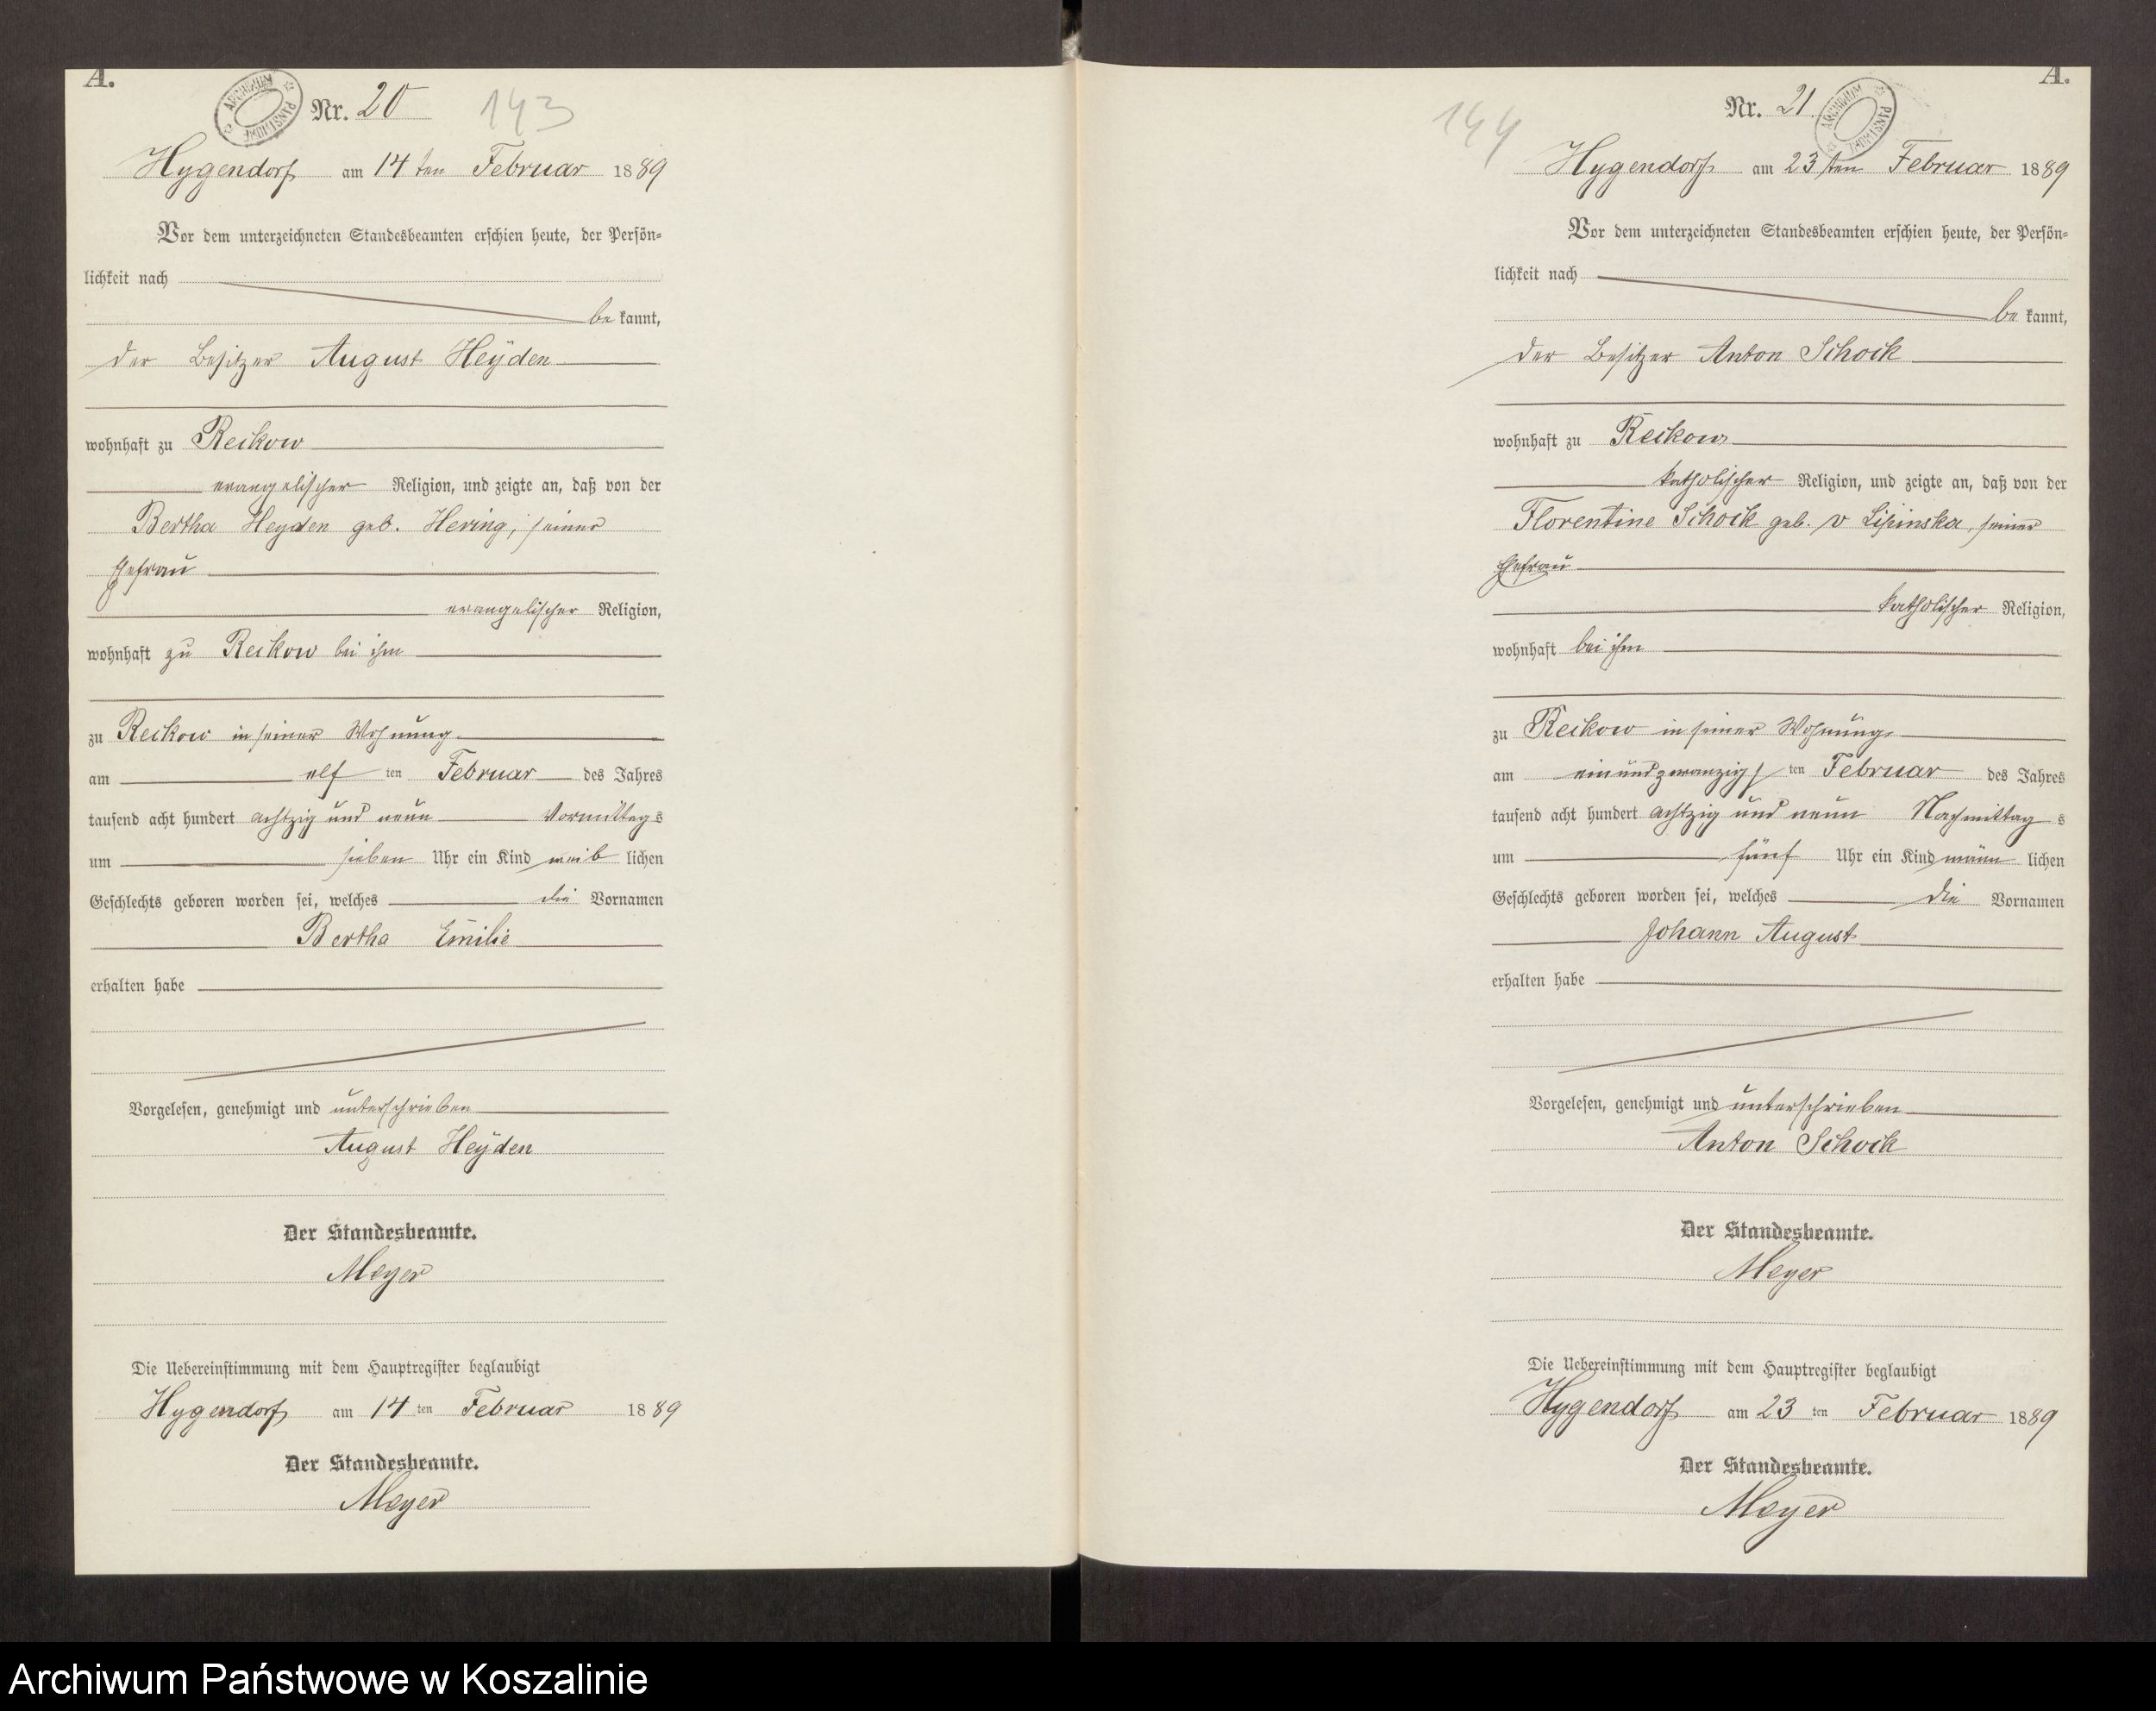 A.
Nr. 20 143
Hygendorf am 14 ten Februar 1889
Vor dem unterzeichneten Standesbeamten erschien heute, der Persön-
lichkeit nach
be kannt,
der Besitzer August Heÿden
wohnhaft zu Reckow
evangelischer Religion, und zeigte an, daß von der
Bertha Heyden geb. Hering, seiner
Ehefrau
evangelischer Religion,
wohnhaft zu Reckow bei ihm
zu Reckow in seiner Wohnung
am elf ten Februar des Jahres
tausend acht hundert achtzig und neun Vormittags
um sieben Uhr ein Kind weib lichen
Geschlechts geboren worden sei, welches die Vornamen
Bertha Emilie
erhalten habe
Vorgelesen, genehmigt und unterschrieben
August Heÿden
Der Standesbeamte.
Meyer
Die Uebereinstimmung mit dem Hauptregister beglaubigt
Hygendorf am 14 ten Februar 1889
Der Standesbeamte.
Meyer
A.
144 Nr. 21.
Hygendorf am 23 ten Februar 1889
Vor dem unterzeichneten Standesbeamten erschien heute, der Persön-
lichkeit nach
be kannt,
der Besitzer Anton Schock
wohnhaft zu Reckow
katholischer Religion, und zeigte an, daß von der
Florentine Schock geb. v Lipinska, seiner
Ehefrau
katholischer Religion,
wohnhaft bei ihm
zu Reckow in seiner Wohnung
am einundzwanzigs ten Februar des Jahres
tausend acht hundert achtzig und neun Nachmittag s
um fünf Uhr ein Kind männ lichen
Geschlechts geboren worden sei, welches die Vornamen
Johann August
erhalten habe
Vorgelesen, genehmigt und unterschrieben
Anton Schock
Der Standesbeamte.
Meyer
Die Uebereinstimmung mit dem Hauptregister beglaubigt
Hygendorf am 23 ten Februar 1889
Der Standesbeamte.
Meyer
Archiwum Państwowe w Koszalinie